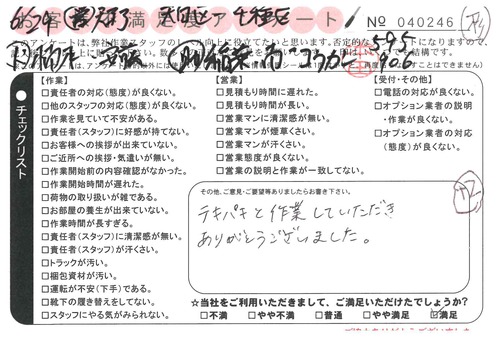 満足度アンケート
No 040246
チェックリスト
【作業】
□責任者の対応(態度)が良くない。
□他のスタッフの対応(態度)が良くない。
□作業を見ていて不安がある。
□責任者(スタッフ)に好感が持てない。
□お客様への挨拶が出来ていない。
□ご近所への挨拶・気遣いが無い。
□作業開始前の内容確認がなかった。
□作業開始時間が遅れた。
□荷物の取り扱いが雑である。
□お部屋の養生が出来ていない。
□作業時間が長すぎる。
□責任者(スタッフ)に清潔感が無い。
□責任者(スタッフ)が汗くさい。
□トラックが汚い。
□梱包資材が汚い。
□運転が不安(下手)である。
□靴下の履き替えをしてない。
□スタッフにやる気がみられない。
【営業】
□見積もり時間に遅れた。
□見積もり時間が長い。
□営業マンに清潔感が無い。
□営業マンが煙草くさい。
□営業マンが汗くさい。
□営業態度が良くない。
□営業の説明と作業が一致してない。
【受付・その他】
□電話の対応が良くない。
□オプション業者の説明
・作業が良くない。
□オプション業者の対応
(態度)が良くない。
その他、ご意見・ご要望等ありましたらお書き下さい。
テキパキと作業していただき
ありがとうございました。
☆当社をご利用いただきまして、ご満足いただけたでしょうか?
□不満 □やや不満 □普通 □やや満足 ☑満足